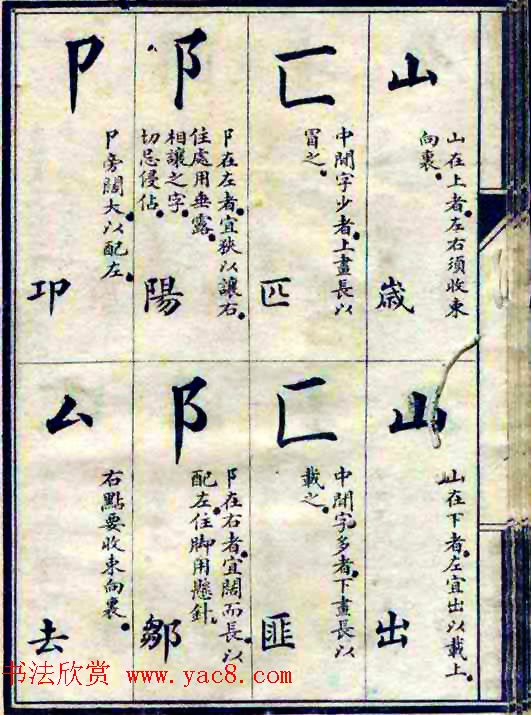 山
山在上者左右須收束
向裏
歲
匚
中間字少者上畫長以
冒之
匹
阝
阝在左者宜狹以讓右
住處用垂露
相讓之字
切忌侵佔
陽
卩
卩旁闊大以配左
卭
山
山在下者左宜出以載上
出
匚
中間字多者下畫長以
載之
匪
阝
阝在右者宜闊而長以
配左住脚用懸針
鄒
厶
右點要收束向裏
去
书法欣赏 www.yac8.com